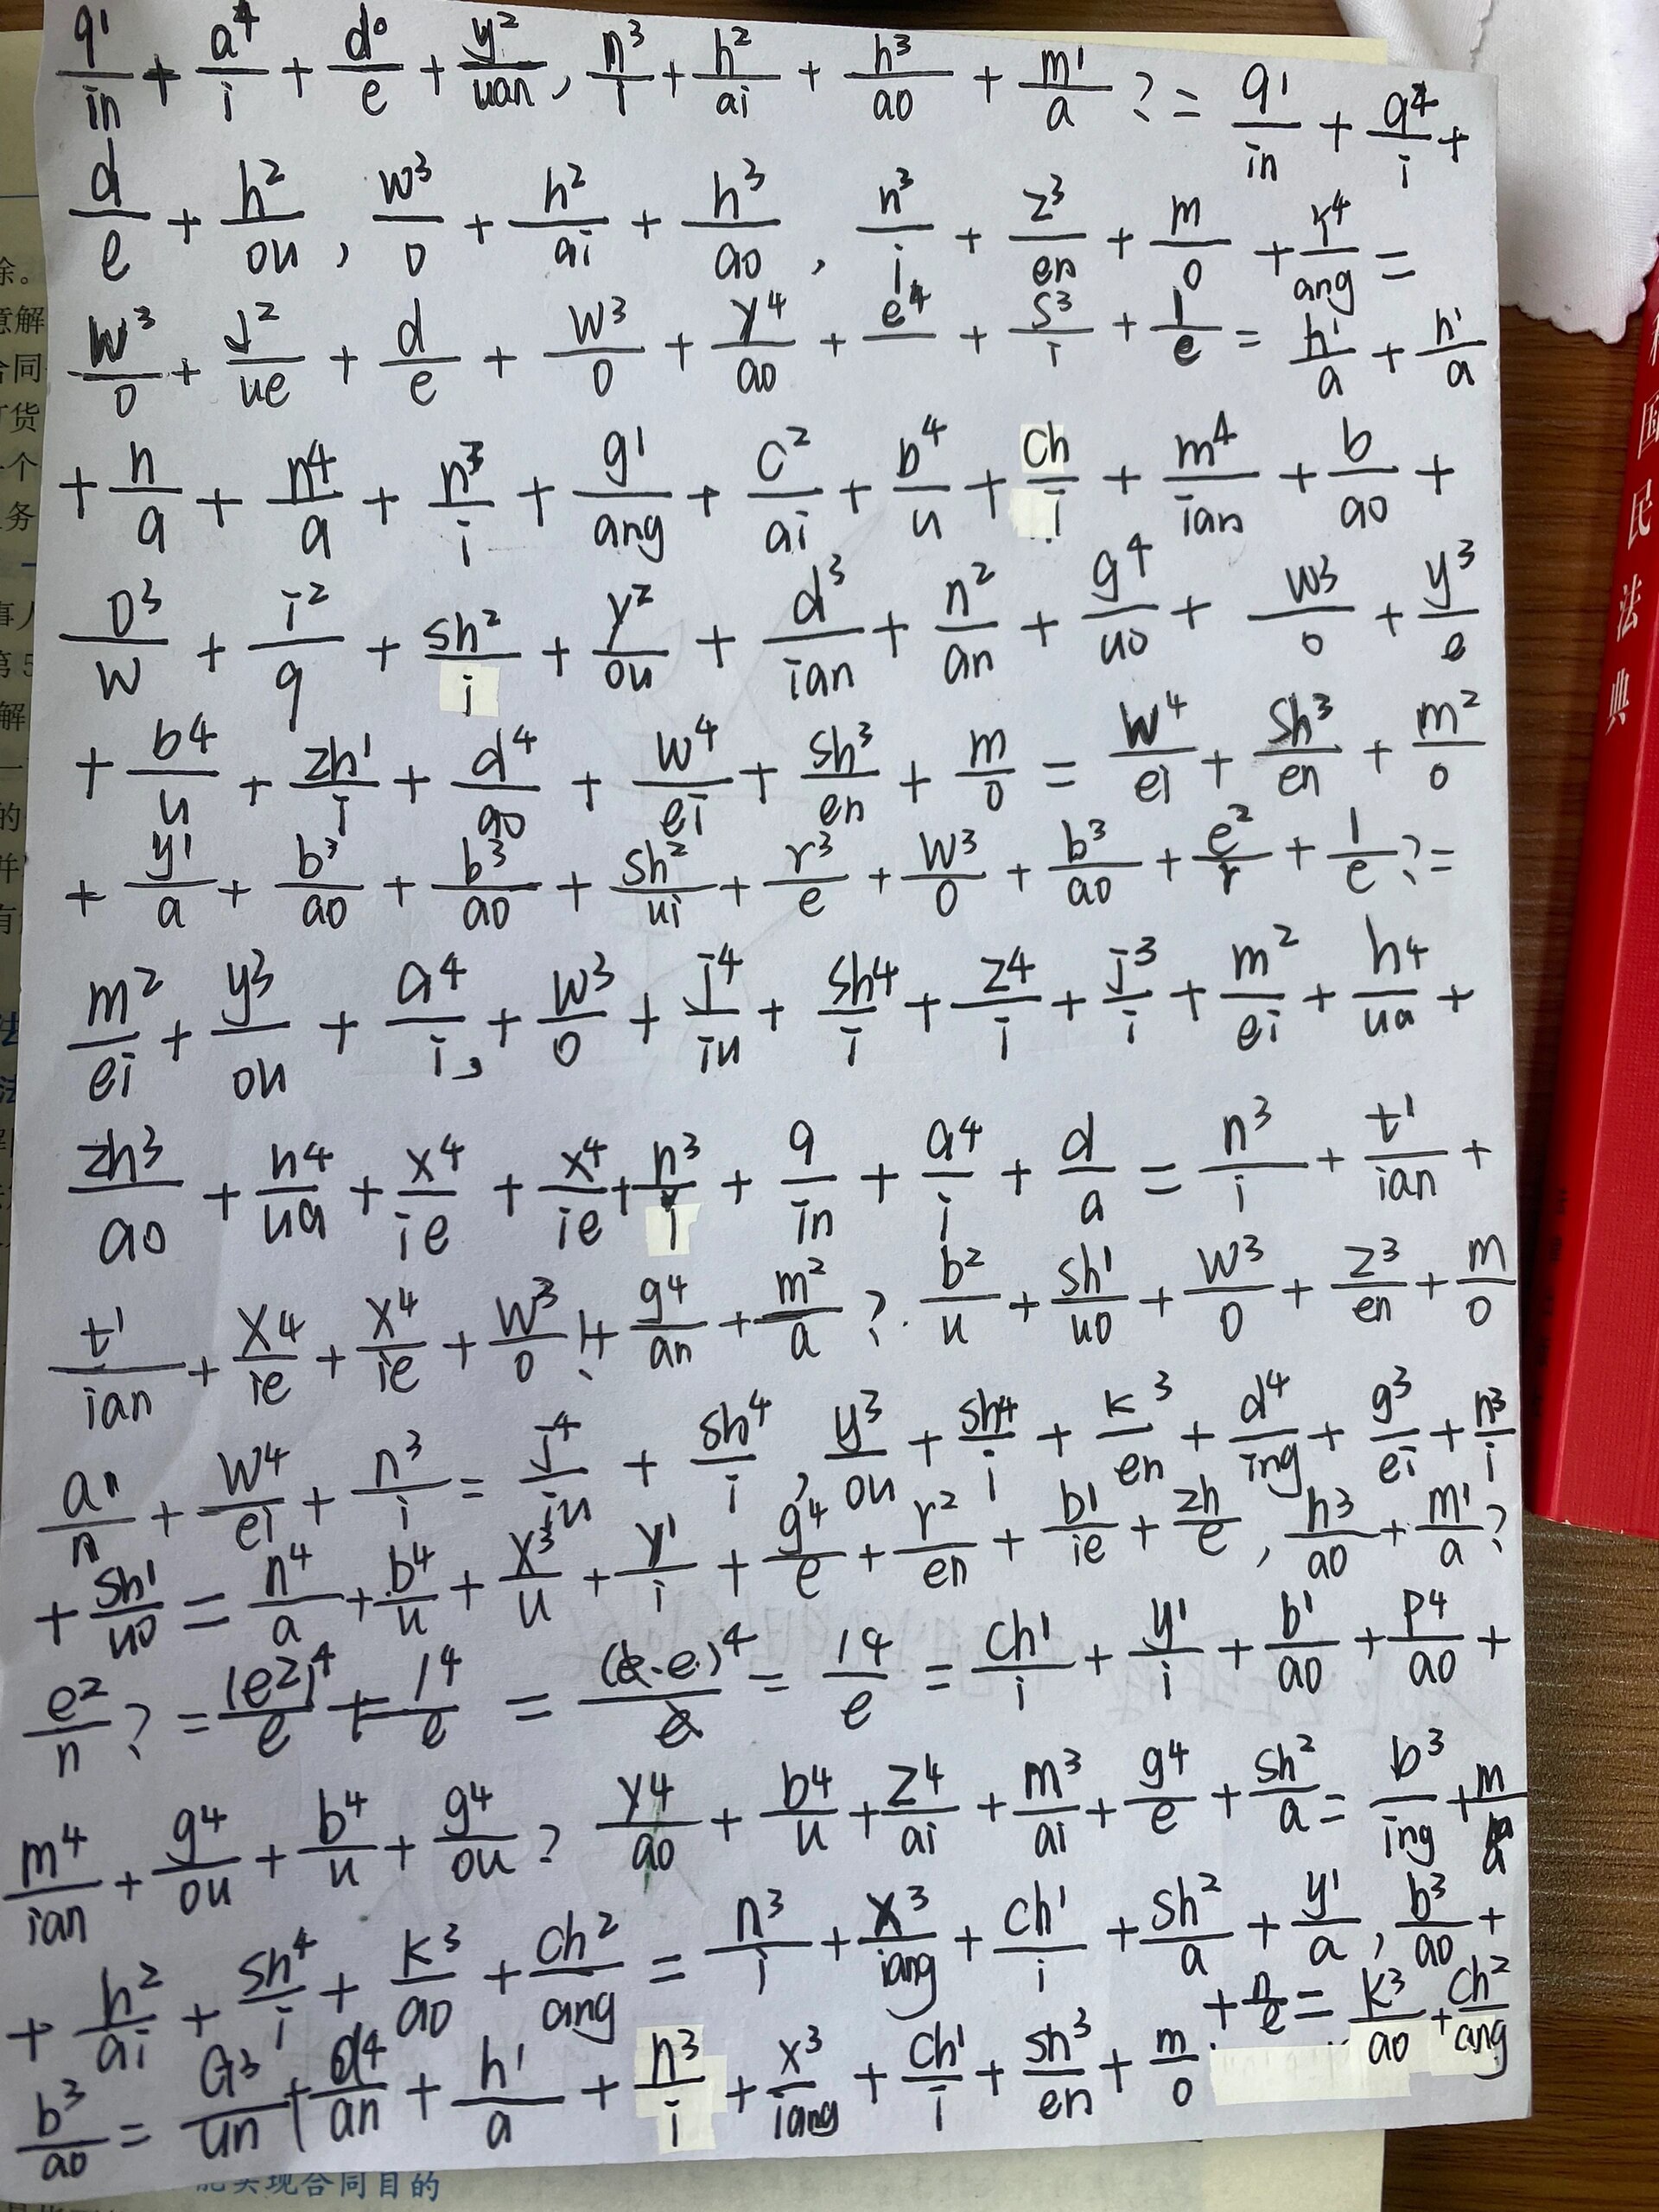 q¹/in + a⁴/i + d⁰/e + y²/uan , n³/i + h²/ai + h³/ao + m¹/a ? = q¹/in + a⁴/i +
d/e + h²/ou , w³/o + h²/ai + h³/ao , n³/i + z³/en + m/o + y⁴/ang =
w³/o + j²/ue + d/e + w³/o + y⁴/ao + e⁴/ + s³/i + l/e = h¹/a + h¹/a
+ h/a + n⁴/a + n³/i + g¹/ang + c²/ai + b⁴/u + ch/i + m⁴/ian + b/ao +
o³/w + i²/q + sh²/i + y²/ou + d³/ian + n²/an + g⁴/uo + w³/o + y³/e
+ b⁴/u + zh¹/i + d⁴/ao + w⁴/ei + sh³/en + m/o = w⁴/ei + sh³/en + m²/o
+ y¹/a + b³/ao + b³/ao + sh²/ui + r³/e + w³/o + b³/ao + e²/r + l/e ? =
m²/ei + y³/ou + a⁴/i , + w³/o + j⁴/iu + sh⁴/i + z⁴/i + j³/i + m²/ei + h⁴/ua +
zh³/ao + h⁴/ua + x⁴/ie + x⁴/ie + n³/i + q/in + a⁴/i + d/a = n³/i + t¹/ian +
t¹/ian + x⁴/ie + x⁴/ie + w³/o ! + g⁴/an + m²/a ? . b²/u + sh¹/uo + w³/o + z³/en + m/o
an/n + w⁴/ei + n³/i = j⁴/iu + sh⁴/i , y³/ou + sh⁴/i + k³/en + d⁴/ing + g³/ei + n³/i
+ sh¹/uo = n⁴/a + b⁴/u + x³/u + y¹/i + g⁴/e + r²/en + b¹/ie + zh/e , h³/ao + m¹/a ?
e²/n ? = (e²)⁴/e + l⁴/e = (e·e)⁴/e = l⁴/e = ch¹/i + y¹/i + b¹/ao + p⁴/ao +
m⁴/ian + g⁴/ou + b⁴/u + g⁴/ou ? y⁴/ao + b⁴/u + z⁴/ai + m³/ai + g⁴/e + sh²/a = b³/ing + m/a
+ h²/ai + sh⁴/i + k³/ao + ch²/ang = n³/i + x³/iang + ch¹/i + sh²/a + y¹/a , b³/ao +
b³/ao = G³/un + d⁴/an + h¹/a + n³/i + x³/iang + ch¹/i + sh³/en + m/o + n/e = k³/ao + ch²/ang
国民法典
能实现合同目的